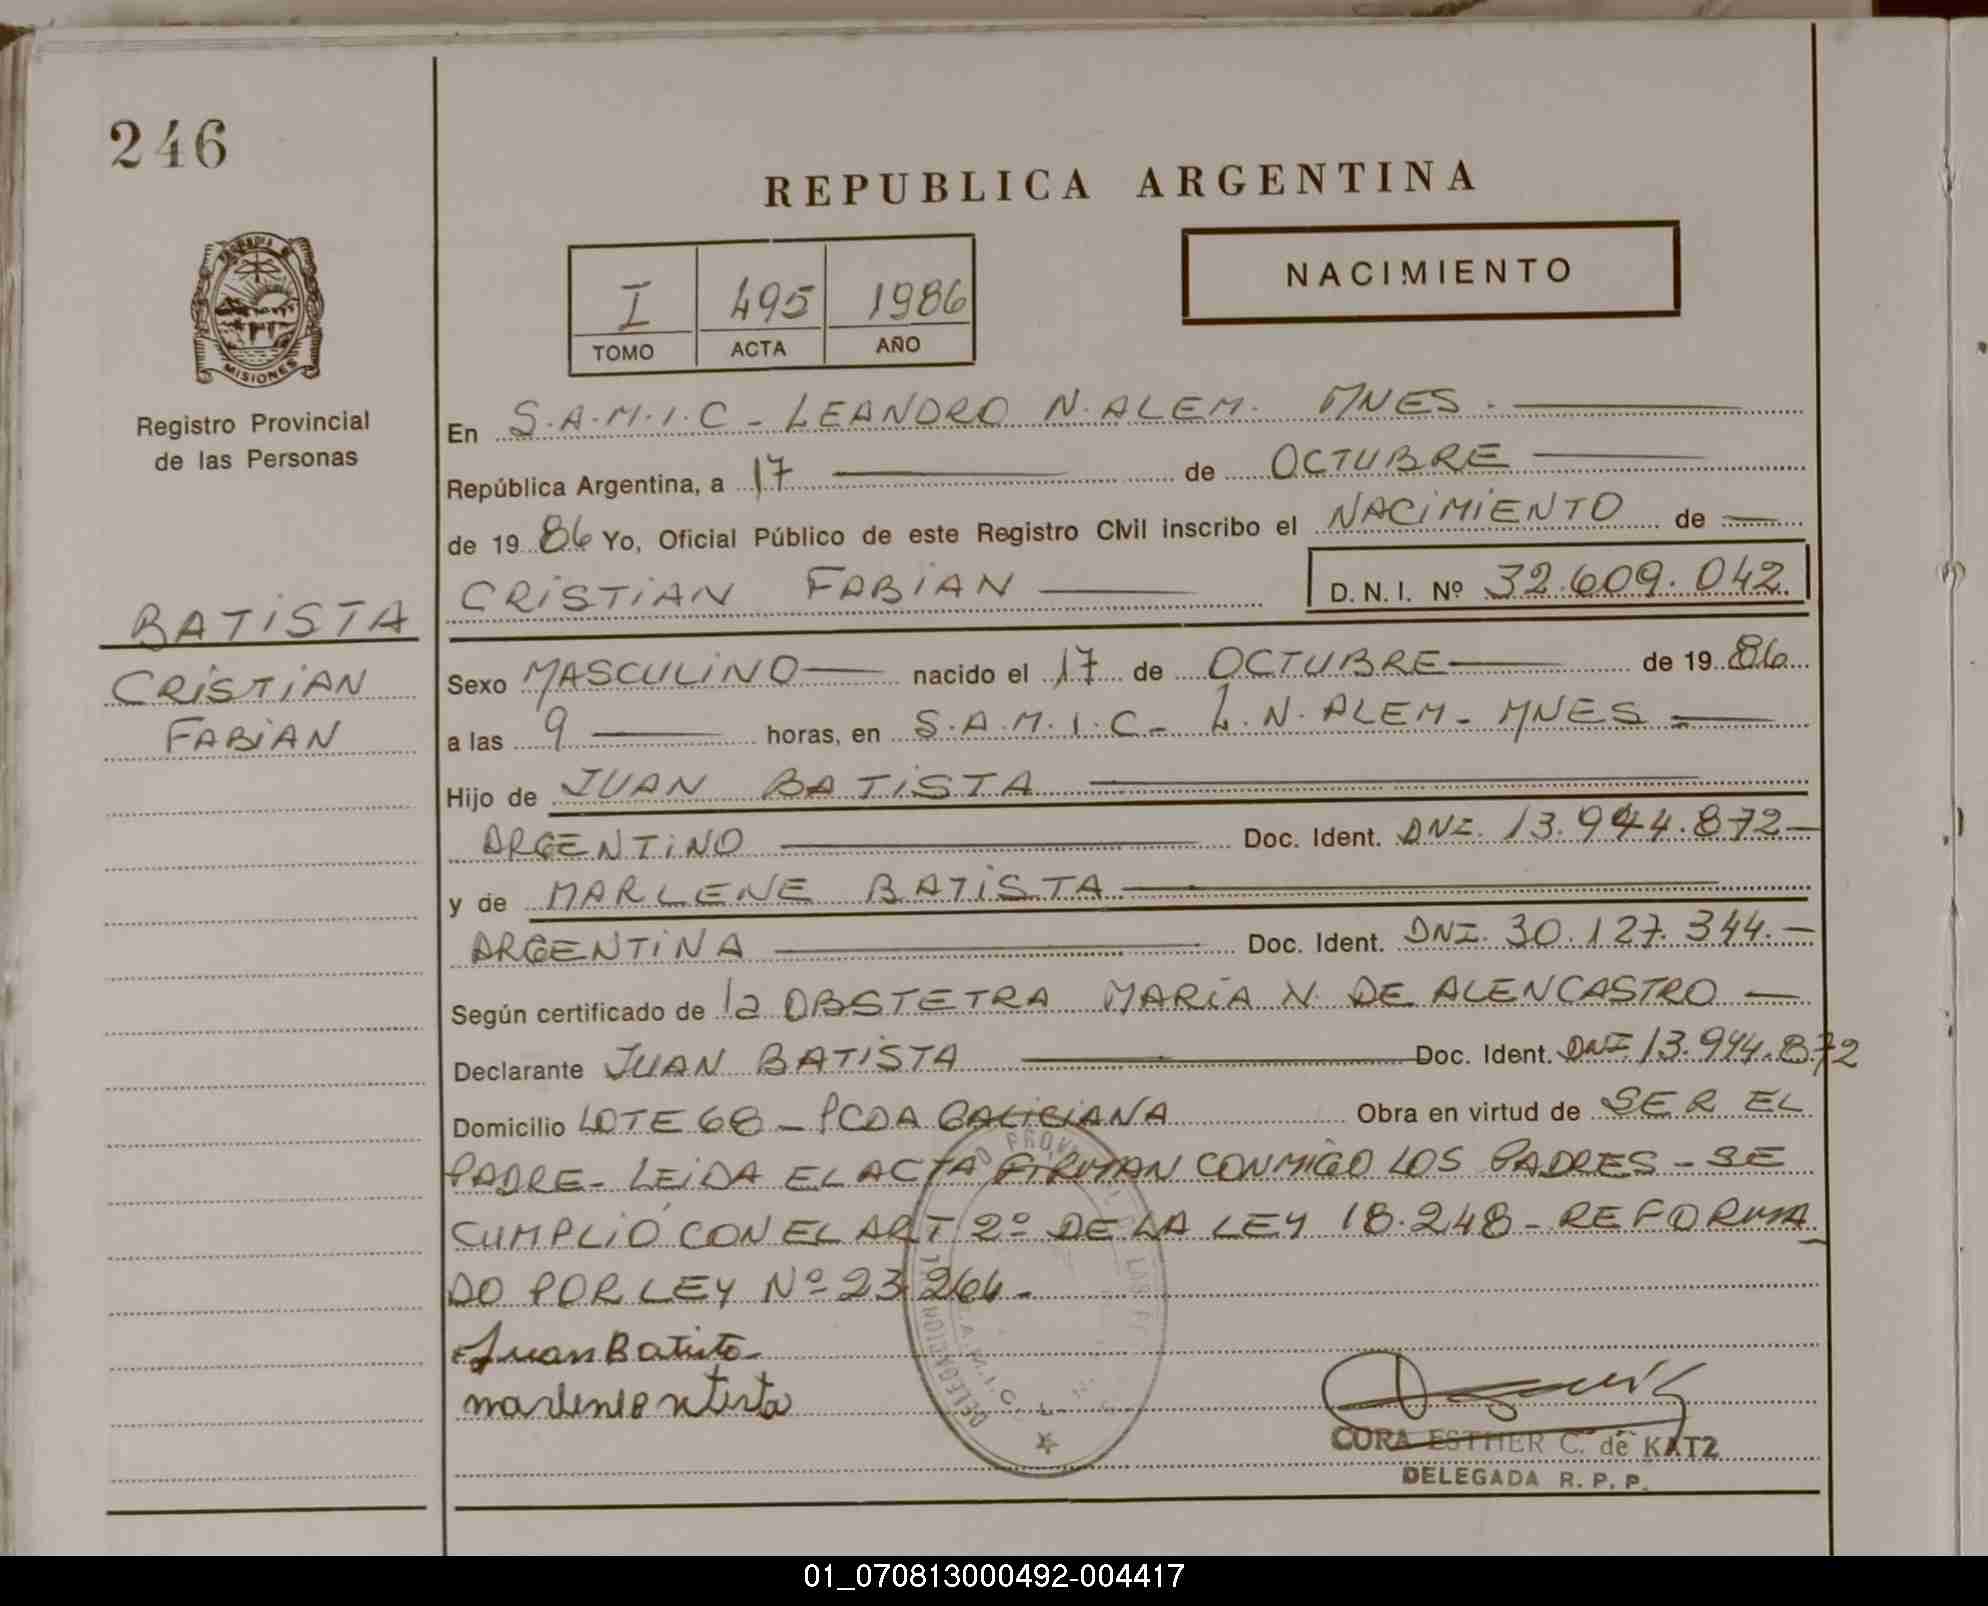 246
REPUBLICA ARGENTINA
NACIMIENTO
I 495 1986
TOMO ACTA AÑO
MISIONES
Registro Provincial
de las Personas
En S.A.M.I.C - LEANDRO N. ALEM. MNES.
República Argentina, a 17 de OCTUBRE
de 19 86 Yo, Oficial Público de este Registro Civil inscribo el NACIMIENTO de
CRISTIAN FABIAN D.N.I. Nº 32.609.042
BATISTA
CRISTIAN
FABIAN
Sexo MASCULINO nacido el 17 de OCTUBRE de 19 86
a las 9 horas, en S.A.M.I.C - L.N. ALEM - MNES
Hijo de JUAN BATISTA
ARGENTINO Doc. Ident. DNI. 13.944.872
y de MARLENE BATISTA
ARGENTINA Doc. Ident. DNI. 30.127.344.
Según certificado de la OBSTETRA MARIA N. DE ALENCASTRO
Declarante JUAN BATISTA Doc. Ident. DNI 13.944.872
Domicilio LOTE 68 - PCDA GALICIANA Obra en virtud de SER EL
PADRE - LEIDA EL ACTA FIRMAN CONMIGO LOS PADRES - SE
CUMPLIÓ CON EL ART 2º DE LA LEY 18.248 - REFORMA
DO POR LEY Nº 23.264 -
Juan Batista
CORA ESTHER C. de KATZ
DELEGADA R. P. P.
01_070813000492-004417